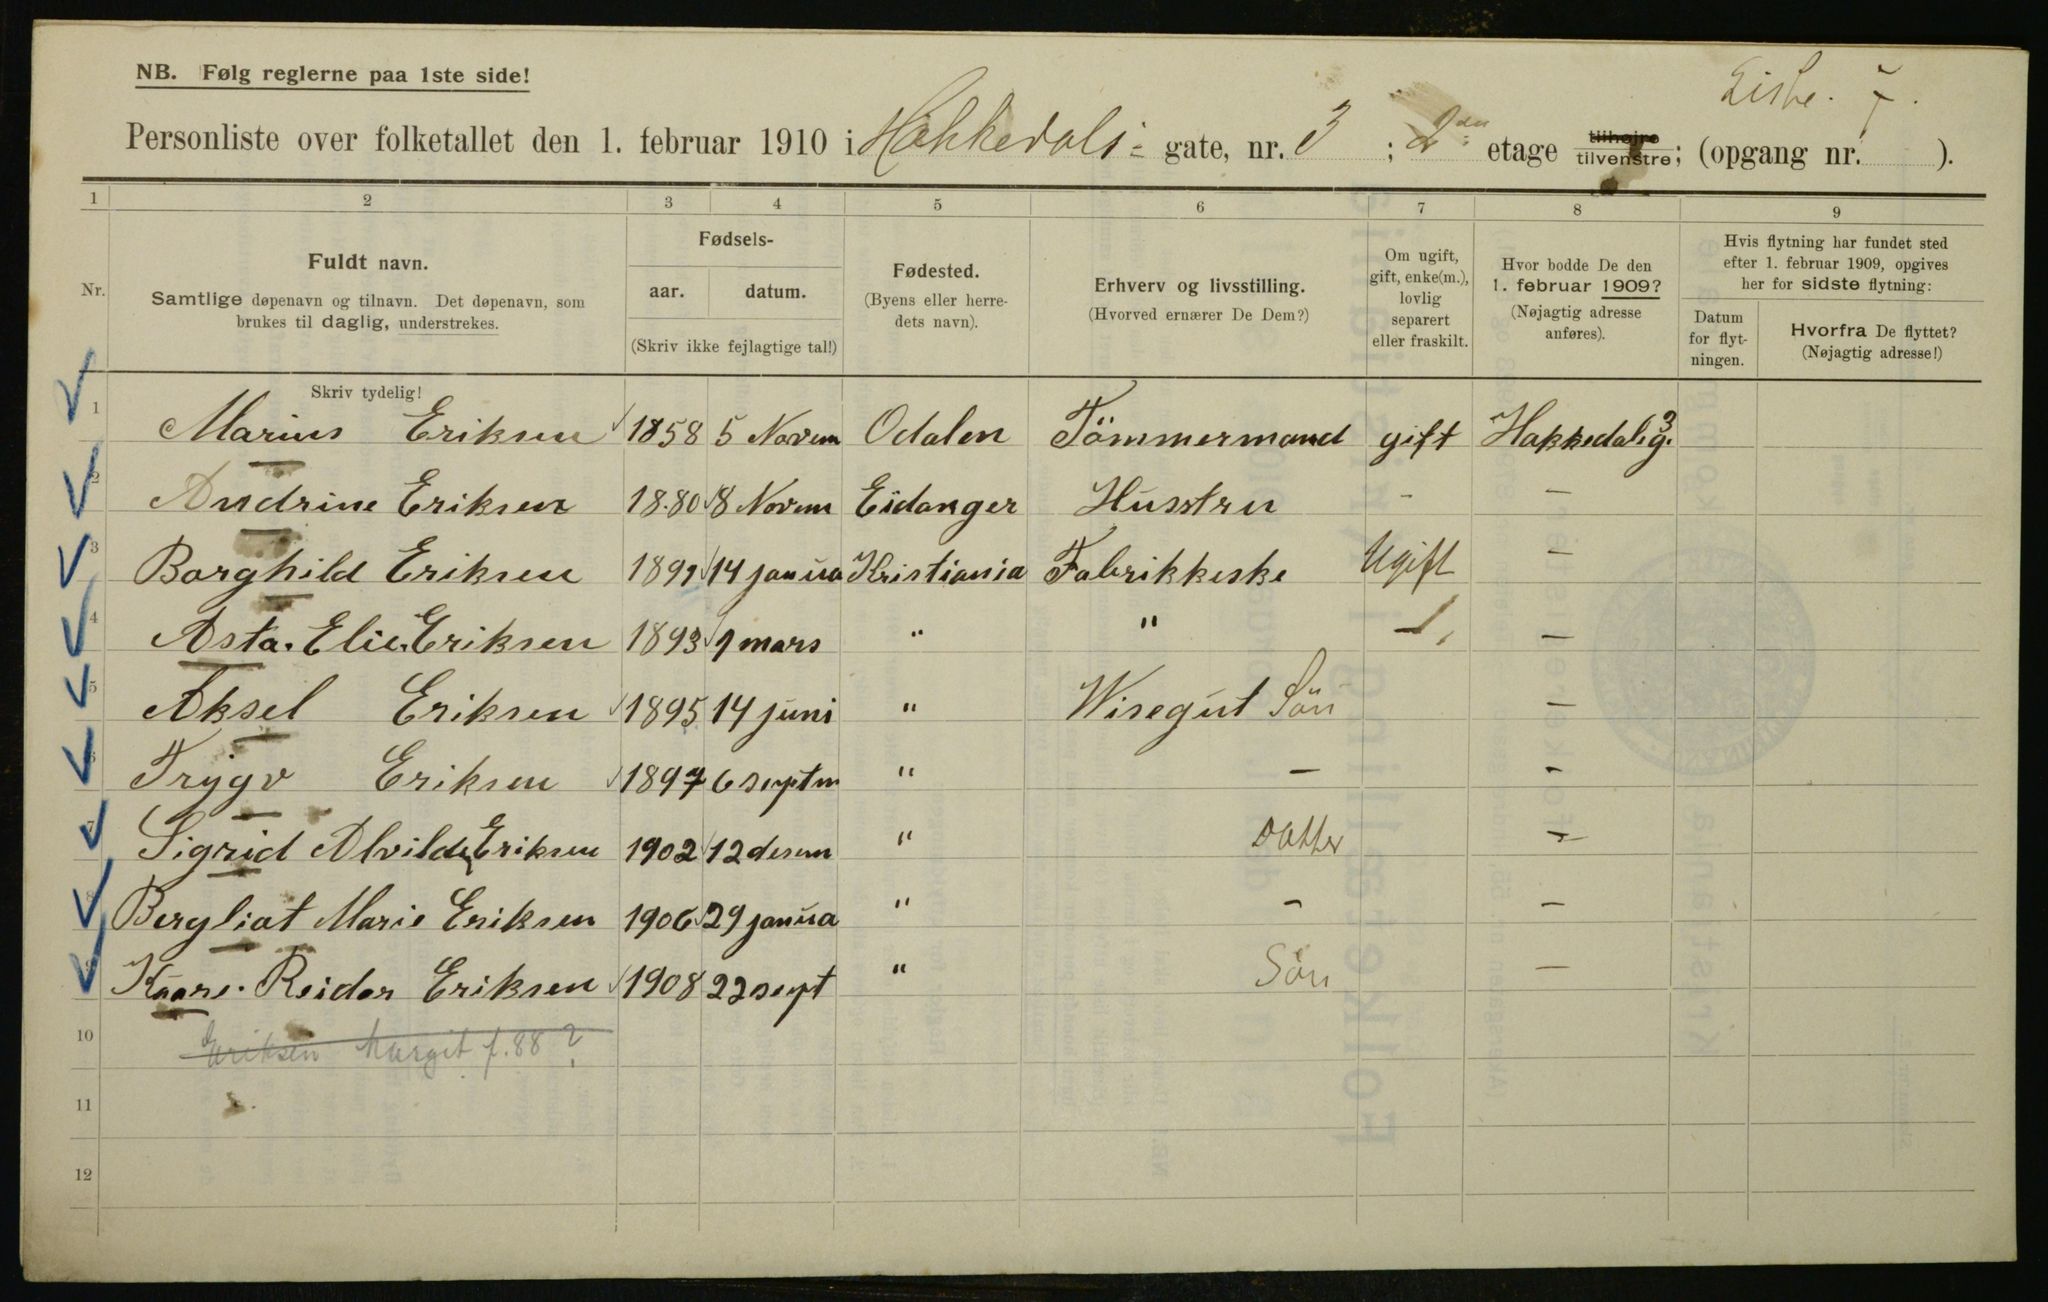 NB. Følg reglerne paa 1ste side!
Liste. 7.
Personliste over folketallet den 1. februar 1910 i Hakkedals- gate, nr. 3 ; 2den etage tilhøjre tilvenstre; (opgang nr. ).
1 2 3 4 5 6 7 8 9
Nr.
Fuldt navn.
Samtlige døpenavn og tilnavn. Det døpenavn, som
brukes til daglig, understrekes.
Fødsels-
aar. datum.
(Skriv ikke fejlagtige tal!)
Fødested.
(Byens eller herre-
dets navn).
Erhverv og livsstilling.
(Hvorved ernærer De Dem?)
Om ugift,
gift, enke(m.),
lovlig
separert
eller fraskilt.
Hvor bodde De den
1. februar 1909?
(Nøjagtig adresse
anføres).
Hvis flytning har fundet sted
efter 1. februar 1909, opgives
her for sidste flytning:
Datum
for flyt-
ningen.
Hvorfra De flyttet?
(Nøjagtig adresse!)
Skriv tydelig!
1 Marius Eriksen 1858 5 Novem Odalen Tömmermand gift Hakkedalsg. 3
2 Andrine Eriksen 1880 8 Novem Eidanger Husstru - -
3 Borghild Eriksen 1891 14 janua Kristiania Fabrikkeske Ugift -
4 Asta. Elie. Eriksen 1893 1 mars " " -
5 Aksel Eriksen 1895 14 juni " Wisegut Sön -
6 Trygv Eriksen 1897 6 septm " - -
7 Sigrid Alvilde Eriksen 1902 12 desem " Datter -
8 Bergliot Marie Eriksen 1906 29 janua " - -
9 Kaare. Reidar Eriksen 1908 22 sept " Sön -
10 Eriksen Margit f. 88 ?
11
12